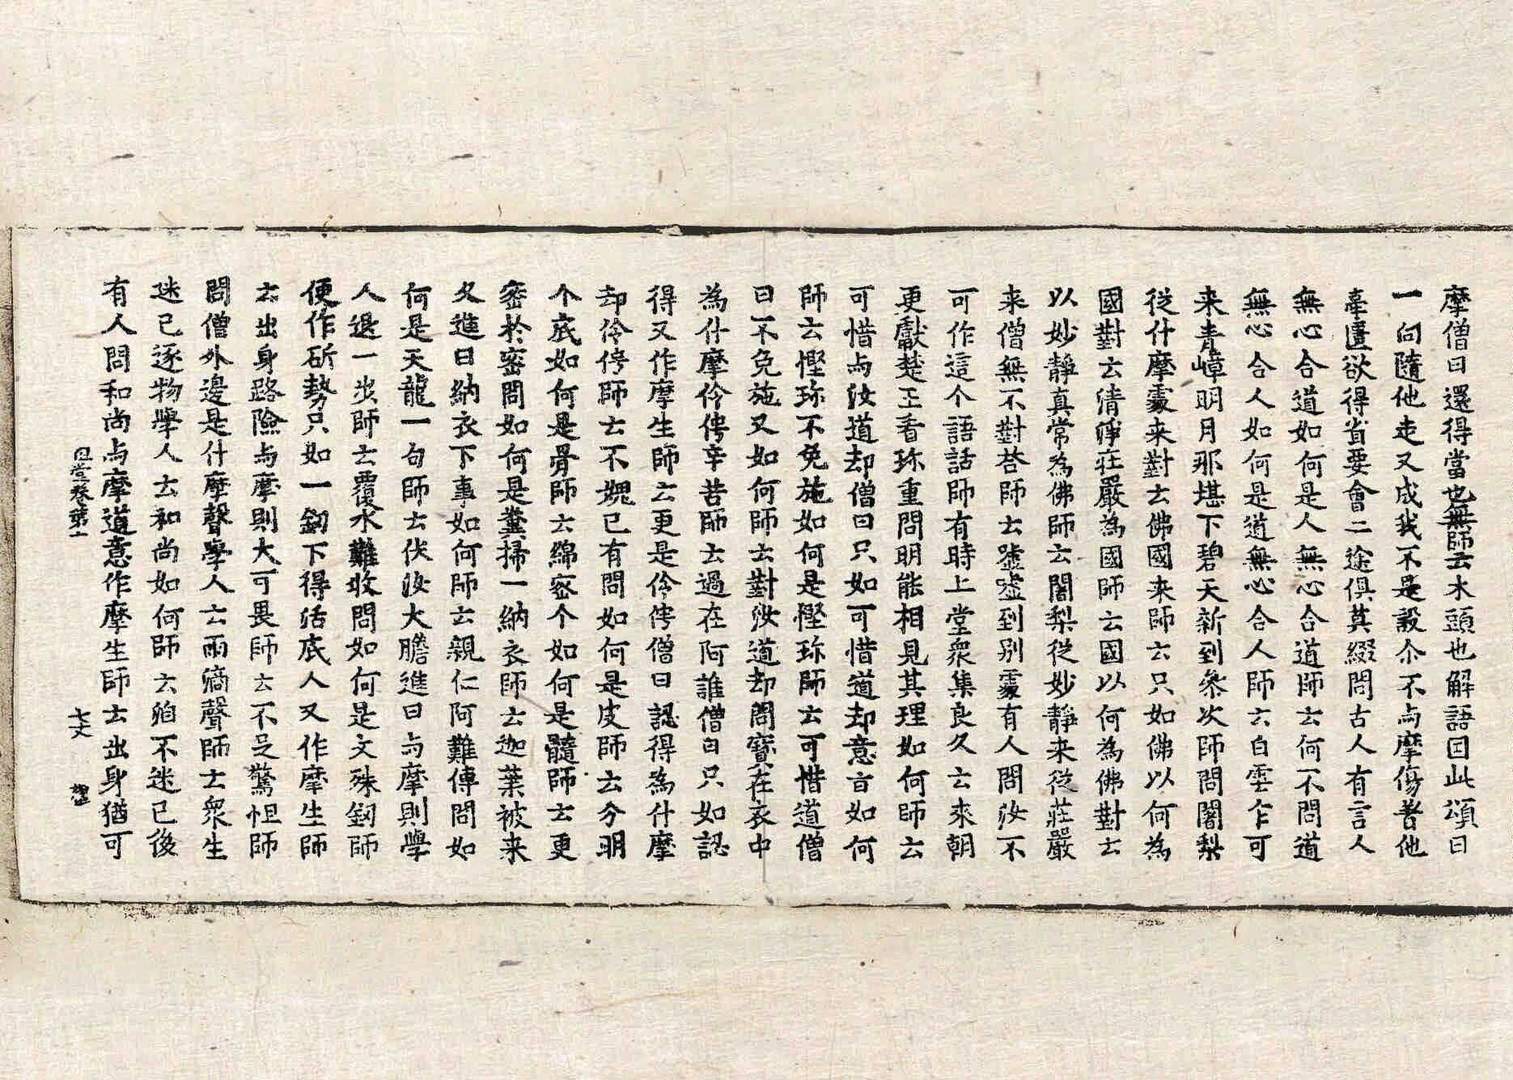 摩僧曰還得當也無師云木頭也解語因此頌曰
一向隨他走又成我不是設尒不与摩傷著他
牽匱欲得省要會二途俱莫綴問古人有言人
無心合道如何是人無心合道師云何不問道
無心合人如何是道無心合人師云白雲乍可
来青嶂明月那堪下碧天新到叅次師問闍梨
從什摩處来對云佛國来師云只如佛以何為
國對云清淨莊嚴為國師云國以何為佛對云
以妙靜真常為佛師云闍梨從妙靜来從莊嚴
来僧無不對荅師云噓噓到別處有人問汝不
可作這个語話師有時上堂衆集良久云来朝
更獻楚王看珎重問明能相見其理如何師云
可惜与汝道却僧曰只如可惜道却意旨如何
師云慳珎不免施如何是慳珎師云可惜道僧
曰不免施又如何師云對汝道却問寶在衣中
為什摩伶俜辛苦師云過在阿誰僧曰只如認
得又作摩生師云更是伶俜僧曰認得為什摩
却伶俜師云不䰟已有問如何是皮師云分明
个底如何是骨師云綿密个如何是髓師云更
密於密問如何是糞掃一納衣師云迦葉被来
久進曰納衣下事如何師云親仁阿難傳問如
何是天龍一句師云伏汝大膽進曰与摩則學
人退一步師云覆水難收問如何是文殊釼師
便作斫勢只如一釼下得活底人又作摩生師
云出身路險与摩則大可畏師云不足驚怛師
問僧外邊是什摩聲學人云雨滴聲師云衆生
迷己逐物學人云和尚如何師云洎不迷己後
有人問和尚与摩道意作摩生師云出身猶可
祖堂卷第十一
七丈